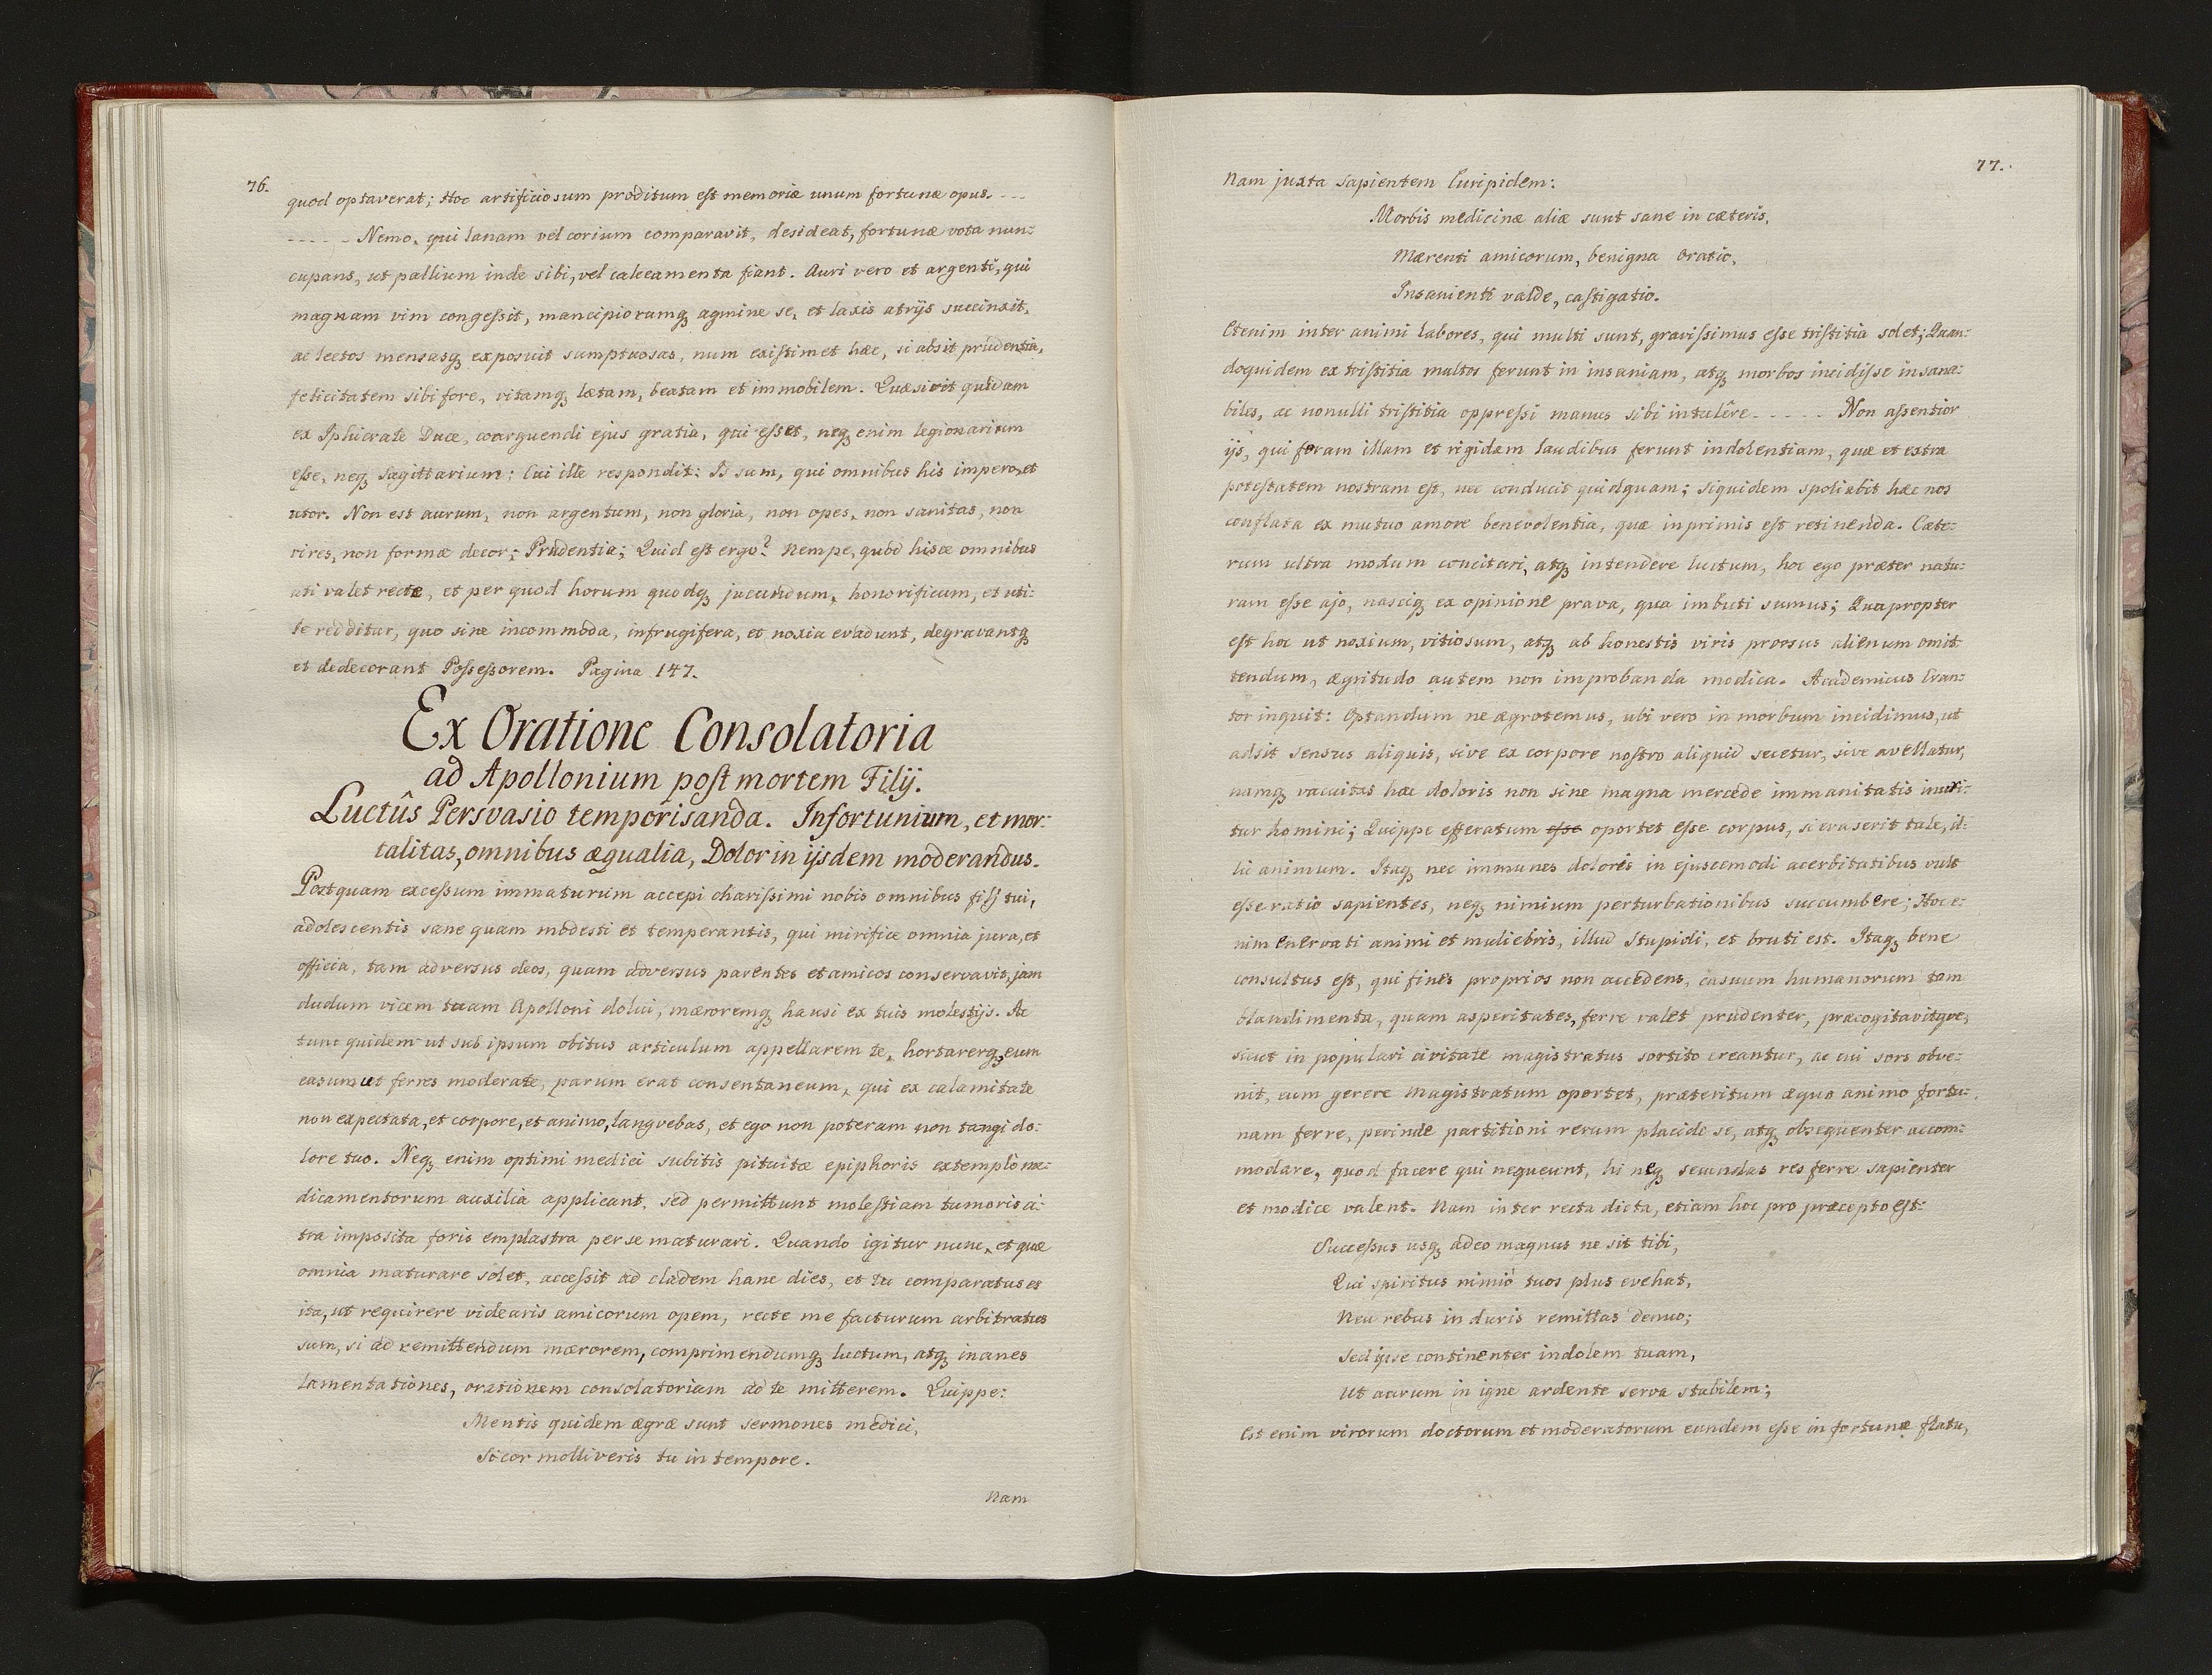 76.
quod optaverat; Hoc artificiosum proditum est memoriæ unum fortunæ opus. - - -
- - - - - Nemo, qui lanam vel corium comparavit, desideat, fortunæ vota nun:
cupans, ut pallium inde sibi, vel calceamenta fiant. Auri vero et argenti, qui
magnam vim congessit, mancipiorumq̨ agmine se, et laxis atrijs succinxit,
ac lectos mensasq̨ exposuit sumptuosas, num existimet hæc, si absit prudentia,
felicitatem sibi fore, vitamq̨ lætam, beatam et immobilem. Quæsivit quidam
ex Iphicrate Duce, coarguendi ejus gratia, qui esset, neq̨ enim legionarium
esse, neq̨ Sagittarium: Cui ille respondit: Is sum, qui omnibus his impero, et
utor. Non est aurum, non argentum, non gloria, non opes, non sanitas, non
vires, non formæ decor; Prudentia; Quid est ergo? Nempe, quod hisce omnibus
uti valet recte, et per quod horum quodq̨ jucundum, honorificum, et uti:
le redditur, quo sine incommoda, infrugifera, et noxia evadunt, degravantq̨
et dedecorant Possessorem. Pagina 147.
Ex Oratione Consolatoria
ad Apollonium post mortem Filij.
Luctûs Persvasio temporisanda. Infortunium, et mor:
talitas, omnibus æqualia, Dolor in ijsdem moderandus.
Postquam excessum immaturum accepi charissimi nobis omnibus filj tui,
adolescentis sane quam modesti et temperantis, qui mirifice omnia jura, et
officia, tam adversus deos, quam adversus parentes et amicos conservavit, jam
dudum vicem tuam Apolloni dolui, mæroremq̨ hausi ex tuis molestijs. Ac
tunc quidem ut sub ipsum obitus articulum appellarem te, hortarerq̨, eum
casum ut ferres moderate, parum erat consentaneum, qui ex calamitate
non expectata, et corpore, et animo, langvebas, et ego non poteram non tangi do:
lore tuo. Neq̨ enim optimi medici subitis pituitæ epiphoris extemplo me:
dicamentorum auxilia applicant, sed permittunt molestiam tumoris ci:
tra imposita foris emplastra per se maturari. Quando igitur nunc, et quæ
omnia maturare solet, accessit ad cladem hanc dies, et tu comparatus es
ita, ut requirere videaris amicorum opem, recte me facturum arbitratus
sum, si ad remittendum mærorem, comprimendumq̨ luctum, atq̨ inanes
lamentationes, orationem consolatoriam ad te mitterem. Quippe:
Mentis quidem ægræ sunt sermones medici,
Si cor molliveris tu in tempore.
Nam
77.
Nam juxta sapientem Euripidem:
Morbis medicinæ aliæ sunt sane in cæteris,
Mærenti amicorum, benigna oratio,
Insanienti valde, castigatio.
Etenim inter animi labores, qui multi sunt, gravissimus esse tristitia solet; Quan:
doquidem ex tristitia multos ferunt in insaniam, atq̨ morbos incidisse insana:
biles, ac nonulli tristitia oppressi manus sibi intulêre - - - - - Non assentior
ijs, qui feram illam et rigidam laudibus ferunt indolentiam, quæ et extra
potestatem nostram est, nec conducit quidquam; siquidem spoliabit hæc nos
conflata ex mutuo amore benevolentia, quæ inprimis est retinenda. Cæte:
rum ultra modum concitari, atq̨ intendere luctum, hoc ego præter natu:
ram esse ajo, nasciq̨ ex opinione prava, qua imbuti sumus; Quapropter
est hoc ut noxium, vitiosum, atq̨ ab honestis viris prorsus alienum omit
tendum, ægritudo autem non improbanda modica. Academicus Cran:
tor inquit: Optandum ne ægrotemus, ubi vero in morbum incidimus, ut
adsit sensus aliquis, sive ex corpore nostro aliquid secetur, sive avellatur,
namq̨ vacuitas hæc doloris non sine magna mercede immanitatis inuri:
tur homini; Quippe efferatum esse oportet esse corpus, si evaserit tale, il:
lic animum. Itaq̨ nec immunes doloris in ejuscemodi acerbitatibus vult
esse ratio sapientes, neq̨ nimium perturbationibus succumbere; Hoc e:
nim enervati animi et muliebris, illud stupidi, et bruti est. Itaq̨ bene
consultus est, qui fines proprios non accedens, casuum humanorum tam
blandimenta, quam asperitates, ferre valet prudenter, præcogitavitque,
sicut in populari civitate magistratus sortito creantur, ac cui sors obve:
nit, eum gerere magistratum oportet, præteritum æquo animo fortu:
nam ferre, perinde partitioni rerum placide se, atq̨ obsequenter accom:
modare, quod facere qui nequeunt, hi neq̨ secundas res ferre sapienter
et modice valent. Nam inter recta dicta, etiam hoc pro præcepto est:
Successus usq̨ adeo magnus ne sit tibi,
Qui spiritus nimio tuos plus evehat,
Neu rebus in duris remittas denuo;
Sed ipse continenter indolem tuam,
Ut aurum in igne ardente serva stabilem;
Est enim virorum doctorum et moderatorum eundem esse in fortunæ flatu,